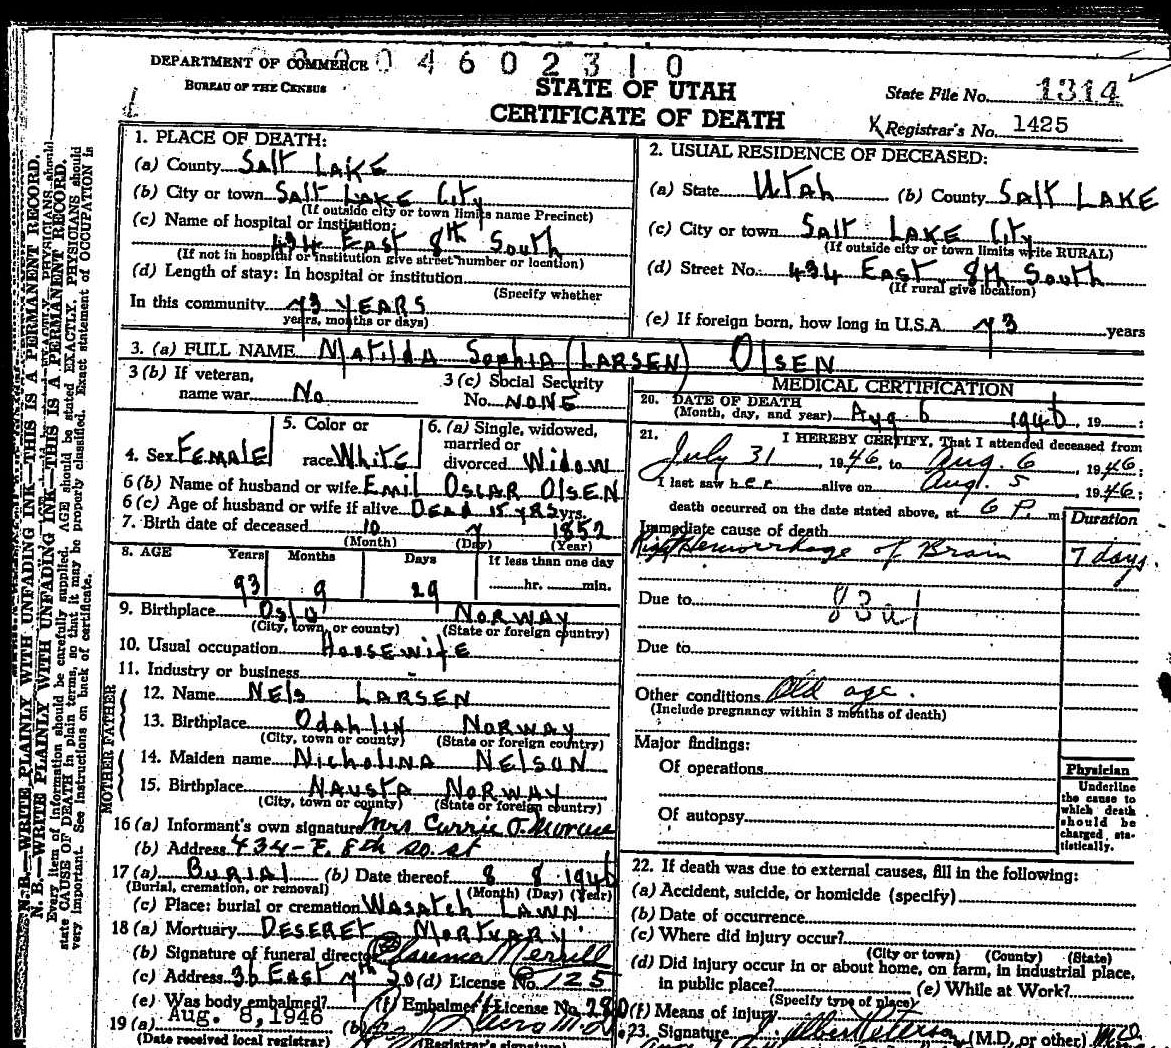 DEPARTMENT OF COMMERCE
BUREAU OF THE CENSUS
04602310
STATE OF UTAH
CERTIFICATE OF DEATH
State File No. 1314
Registrar's No. 1425
N. B.—WRITE PLAINLY WITH UNFADING INK—THIS IS A PERMANENT RECORD.
Every item of information should be carefully supplied. AGE should be stated EXACTLY. PHYSICIANS should
state CAUSE OF DEATH in plain terms, so that it may be properly classified. Exact statement of OCCUPATION is
very important. See Instructions on back of certificate.
1. PLACE OF DEATH:
(a) County Salt LAKE
(b) City or town Salt LAKE City
(If outside city or town limits name Precinct)
(c) Name of hospital or institution:
434 East 8th South
(If not in hospital or institution give street number or location)
(d) Length of stay: In hospital or institution
(Specify whether
In this community 73 YEARS
years, months or days)
2. USUAL RESIDENCE OF DECEASED:
(a) State Utah (b) County Salt LAKE
(c) City or town Salt LAKE City
(If outside city or town limits write RURAL)
(d) Street No. 434 East 8th South
(If rural give location)
(e) If foreign born, how long in U.S.A. 73 years
3. (a) FULL NAME Matilda Sophia (LARSEN) OlSEN
3 (b) If veteran,
name war No
3 (c) Social Security
No. NONE
4. Sex FEmALE
5. Color or
race White
6. (a) Single, widowed,
married or
divorced Widow
6 (b) Name of husband or wife Emil OSCAR OlSEN
6 (c) Age of husband or wife if alive DEAD 15 YRS yrs.
7. Birth date of deceased 10 7 1852
(Month) (Day) (Year)
8. AGE Years Months Days If less than one day
93 9 29 hr. min.
9. Birthplace Oslo NORWAY
(City, town, or county) (State or foreign country)
10. Usual occupation HousEwifE
11. Industry or business
FATHER
12. Name NEls LARSEN
13. Birthplace Odahlin NORWAY
(City, town or county) (State or foreign country)
MOTHER
14. Maiden name Nicholina NELSON
15. Birthplace NAustA NORWAY
(City, town or county) (State or foreign country)
16 (a) Informant's own signature Mrs Currie O.
(b) Address 434-E. 8th So. St
17 (a) BuRiAl (b) Date thereof 8 8 1946
(Burial, cremation, or removal) (Month) (Day) (Year)
(c) Place: burial or cremation WasAtch LAWN
18 (a) Mortuary DESERET MORTUARY
(b) Signature of funeral director Merrill
(c) Address 36 East 7th So (d) License No. 125
(e) Was body embalmed? (f) Embalmer's License No. 280
19 (a) Aug. 8, 1946 (b)
(Date received local registrar) (Registrar's signature)
MEDICAL CERTIFICATION
20. DATE OF DEATH
(Month, day, and year) Aug 6 1946, 19
21. I HEREBY CERTIFY, That I attended deceased from
July 31, 1946, to Aug. 6, 1946;
I last saw her alive on Aug. 5, 1946;
death occurred on the date stated above, at 6 P. m.
Duration
Immediate cause of death
Right Hemorrhage of Brain 7 days.
Due to 83a1
Due to
Other conditions Old age.
(Include pregnancy within 3 months of death)
Major findings:
Of operations
Of autopsy
Physician
Underline
the cause to
which death
should be
charged, sta-
tistically.
22. If death was due to external causes, fill in the following:
(a) Accident, suicide, or homicide (specify)
(b) Date of occurrence
(c) Where did injury occur?
(City or town) (County) (State)
(d) Did injury occur in or about home, on farm, in industrial place,
in public place? (e) While at Work?
(Specify type of place)
(f) Means of injury
23. Signature J. Albert Peterson (M.D. or other) M.D.